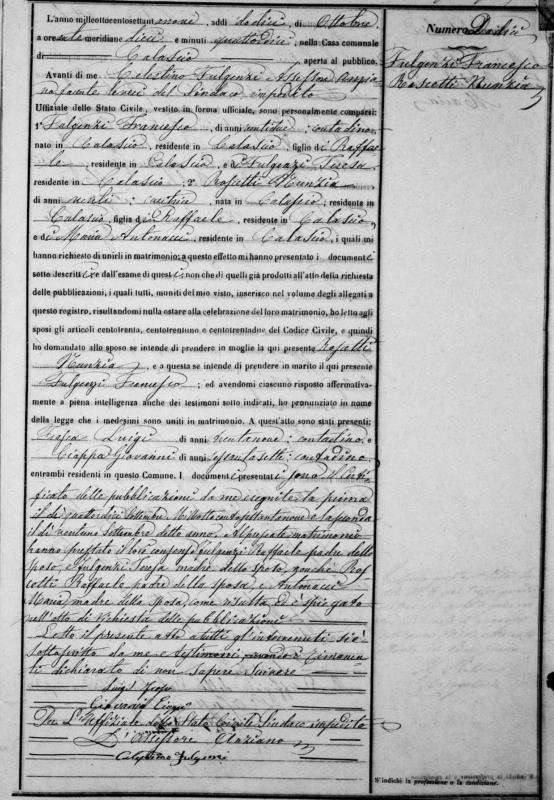 L'anno milleottocentosettantanove, addì dodici, di Ottobre
a ore ante meridiane dieci e minuti quattordici, nella Casa comunale
di Calascio, aperta al pubblico.
Avanti di me Celestino Fulgenzi Assessore Anziano
facente veci del Sindaco impedito
Uffiziale dello Stato Civile, vestito in forma ufficiale, sono personalmente comparsi:
1° Fulgenzi Francesco, di anni ventidue; contadino
nato in Calascio, residente in Calascio, figlio di Raffae-
le, residente in Calascio, e di Fulgenzi Teresa
residente in Calascio; 2° Roscetti Nunzia
di anni venti; nata in Calascio, residente in
Calascio, figlia di Raffaele, residente in Calascio,
e di Maria Antonacci, residente in Calascio, i quali mi
hanno richiesto di unirli in matrimonio; a questo effetto mi hanno presentato i documenti
sotto descritti; e dall'esame di questi, non che di quelli già prodotti all'atto della richiesta
delle pubblicazioni, i quali tutti, muniti del mio visto, inserisco nel volume degli allegati a
questo registro, risultandomi nulla ostare alla celebrazione del loro matrimonio, ho letto agli
sposi gli articoli centotrenta, centotrentuno e centotrentadue del Codice Civile, e quindi
ho domandato allo sposo se intende di prendere in moglie la qui presente Roscetti
Nunzia, e a questa se intende di prendere in marito il qui presente
Fulgenzi Francesco; ed avendomi ciascuno risposto affermativamente
a piena intelligenza anche dei testimoni sotto indicati, ho pronunziato in nome
della legge che i medesimi sono uniti in matrimonio. A quest'atto sono stati presenti:
Luigi di anni trentanove; contadino e
Ciappa Giovanni di anni sessantasette; contadino
entrambi residenti in questo Comune. I documenti presentati sono il Certi-
ficato delle pubblicazioni da me eseguite la prima
il dì quattordici Settembre Milleottocentosettantanove e la seconda
il dì ventuno Settembre detto anno. Al presente matrimonio
hanno prestato il loro consenso Fulgenzi Raffaele padre dello
sposo, e Fulgenzi Teresa madre dello sposo, nonché Ros-
cetti Raffaele padre della sposa, e Antonacci
Maria, madre della sposa, come risulta ed è spiegato
nell'atto di richiesta delle pubblicazioni
Letto il presente atto a tutti gl'intervenuti si è
sottoscritto da me e testimoni, avendo i rimanen-
ti dichiarato di non sapere scrivere
Luigi
Giovanni
Per L'Uffiziale dello Stato Civile Sindaco impedito
L'Assessore Anziano
Celestino Fulgenzi
Numero Dodici
Fulgenzi Francesco
Roscetti Nunzia
S'indichi la professione o la condizione.